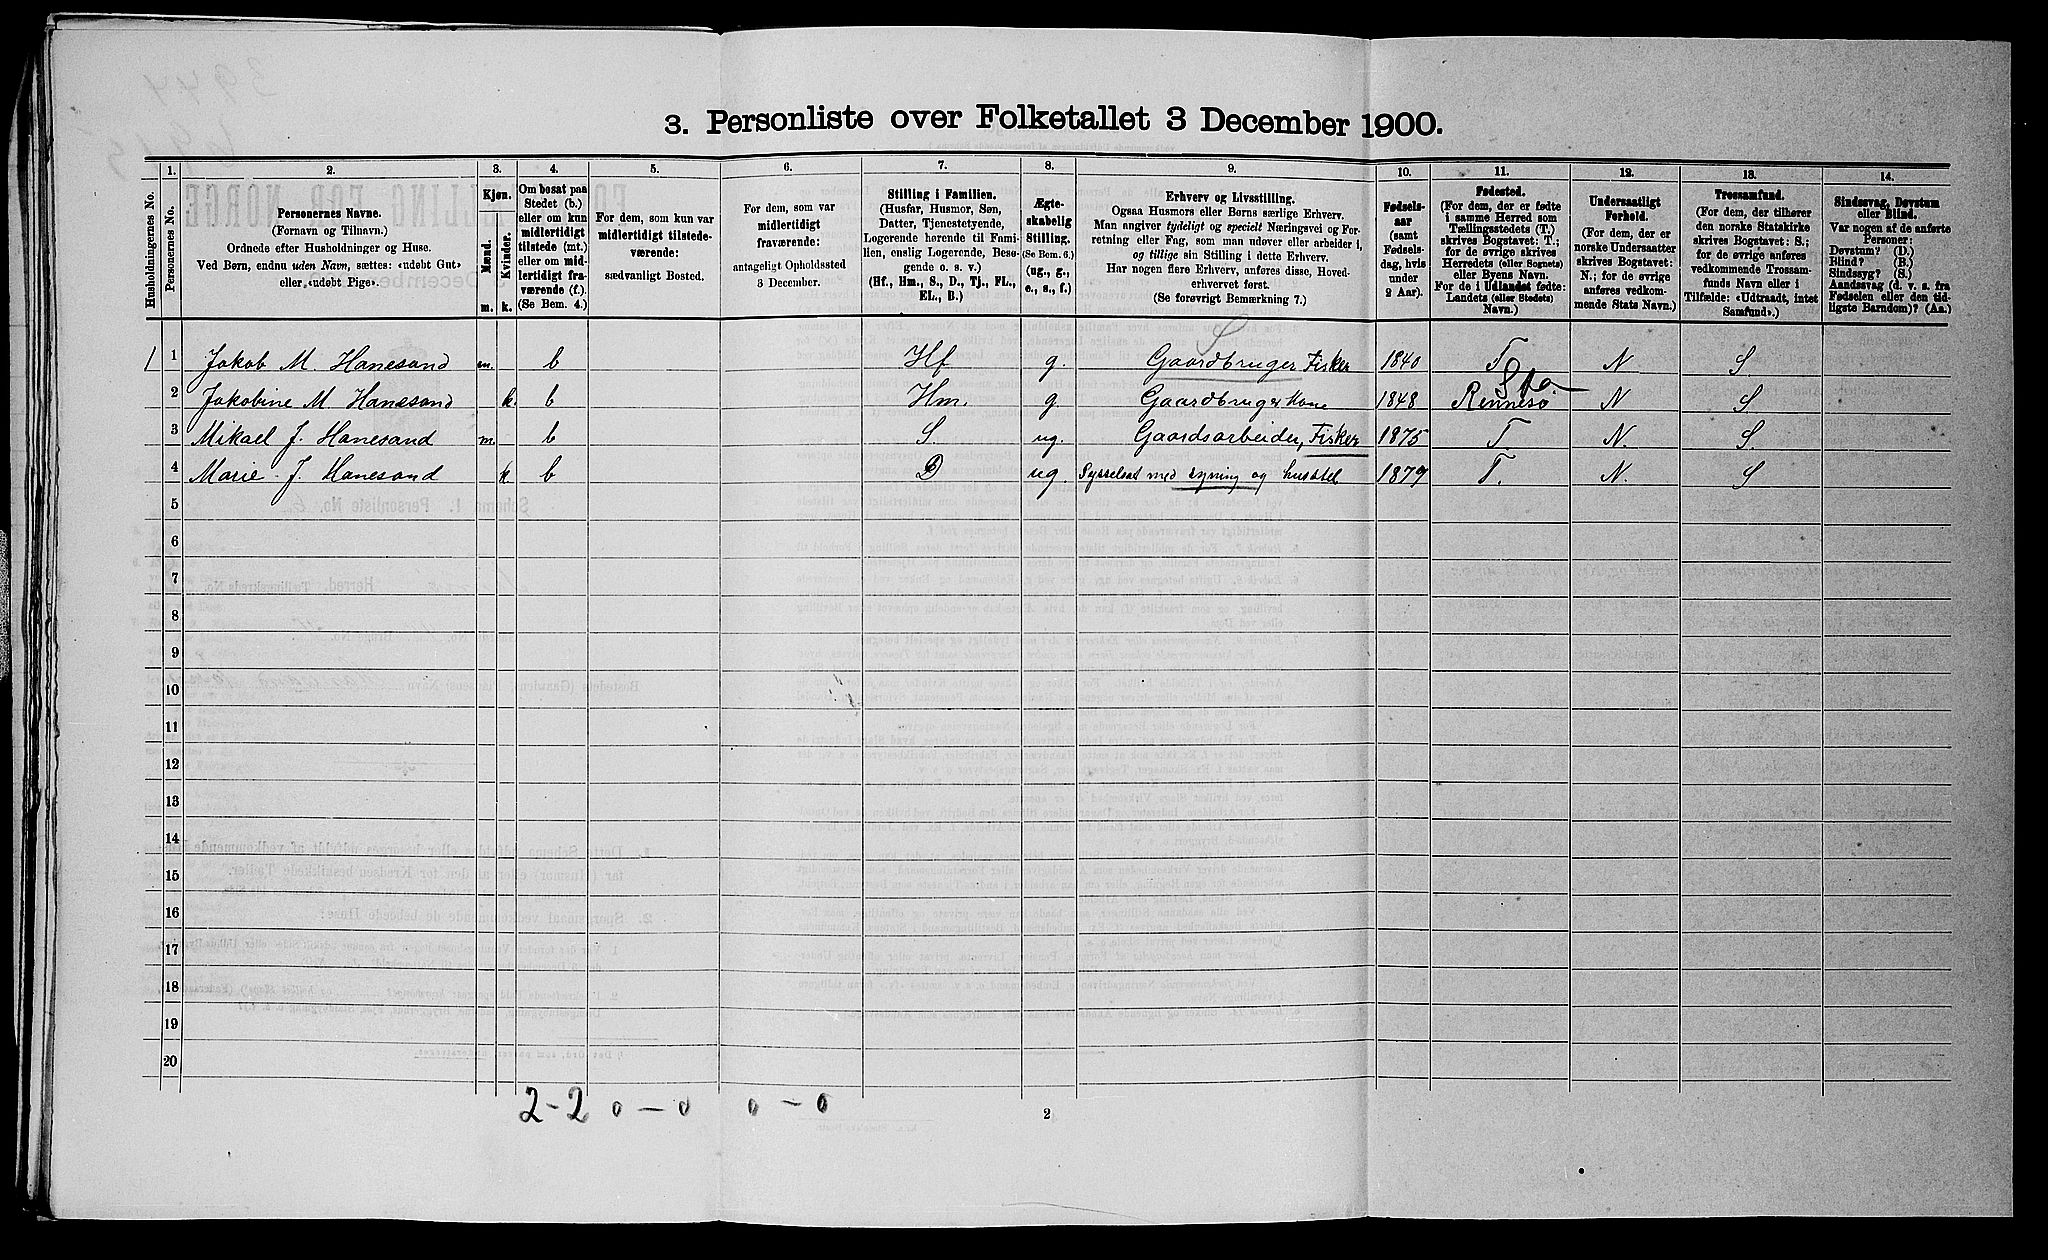 3. Personliste over Folketallet 3 December 1900.
1. 2. 3. 4. 5. 6. 7. 8. 9. 10. 11. 12. 13. 14.
Husholdningernes No.
Personernes No.
Personernes Navne.
(Fornavn og Tilnavn.)
Ordnede efter Husholdninger og Huse.
Ved Børn, endnu uden Navn, sættes: «udøbt Gut»
eller «udøbt Pige».
Kjøn.
Mænd.
Kvinder.
m. k.
Om bosat paa
Stedet (b.)
eller om kun
midlertidigt
tilstede (mt.)
eller om mid-
lertidigt fra-
værende (f.).
(Se Bem. 4.)
For dem, som kun var
midlertidigt tilstede-
værende:
sædvanligt Bosted.
For dem, som var
midlertidigt
fraværende:
antageligt Opholdssted
3 December.
Stilling i Familien.
(Husfar, Husmor, Søn,
Datter, Tjenestetyende,
Logerende hørende til Fami-
lien, enslig Logerende, Besø-
gende o. s. v.)
(Hf., Hm., S., D., Tj., FL.,
EL., B.)
Ægte-
skabelig
Stilling.
(Se Bem. 6.)
(ug., g.,
e., s., f.)
Erhverv og Livsstilling.
Ogsaa Husmors eller Børns særlige Erhverv.
Man angiver tydeligt og specielt Næringsvei og For-
retning eller Fag, som man udøver eller arbeider i,
og tillige sin Stilling i dette Erhverv.
Har nogen flere Erhverv, anføres disse, Hoved-
erhvervet først.
(Se forøvrigt Bemærkning 7.)
Fødsels-
aar
(samt
Fødsels-
dag, hvis
under
2 Aar).
Fødested.
(For dem, der er fødte
i samme Herred som
Tællingsstedets (T.)
skrives Bogstavet: T.;
for de øvrige skrives
Herredets (eller Sognets)
eller Byens Navn.
For de i Udlandet fødte:
Landets (eller Stedets)
Navn.)
Undersaatligt
Forhold.
(For dem, der er
norske Undersaatter
skrives Bogstavet:
N.; for de øvrige
anføres vedkom-
mende Stats Navn.)
Trossamfund.
(For dem, der tilhører
den norske Statskirke
skrives Bogstavet: S.;
for de øvrige anføres
vedkommende Trossam-
funds Navn eller i
Tilfælde: «Udtraadt, intet
Samfund».)
Sindssvag, Døvstum
eller Blind.
Var nogen af de anførte
Personer:
Døvstum? (D.)
Blind? (B.)
Sindssyg? (S.)
Aandssvag (d. v. s. fra
Fødselen eller den tid-
ligste Barndom)? (Aa.)
S
1 1 Jakob M. Hanesand m. b Hf g. Gaardbruger Fisker 1840 T N S
Sta
2 Jakobine M Hanesand k. b Hm. g Gaardbruger Kone 1848 Rennesø N S
3 Mikael J. Hanesand m. b S ug. Gaardsarbeider, Fisker 1875 T N. S.
4 Marie J. Hanesand k b D ug Sysselsat med syning og husstel 1879 T. N. S
5
6
7
8
9
10
11
12
13
14
15
16
17
18
19
20
2-2 0-0 0-0
2